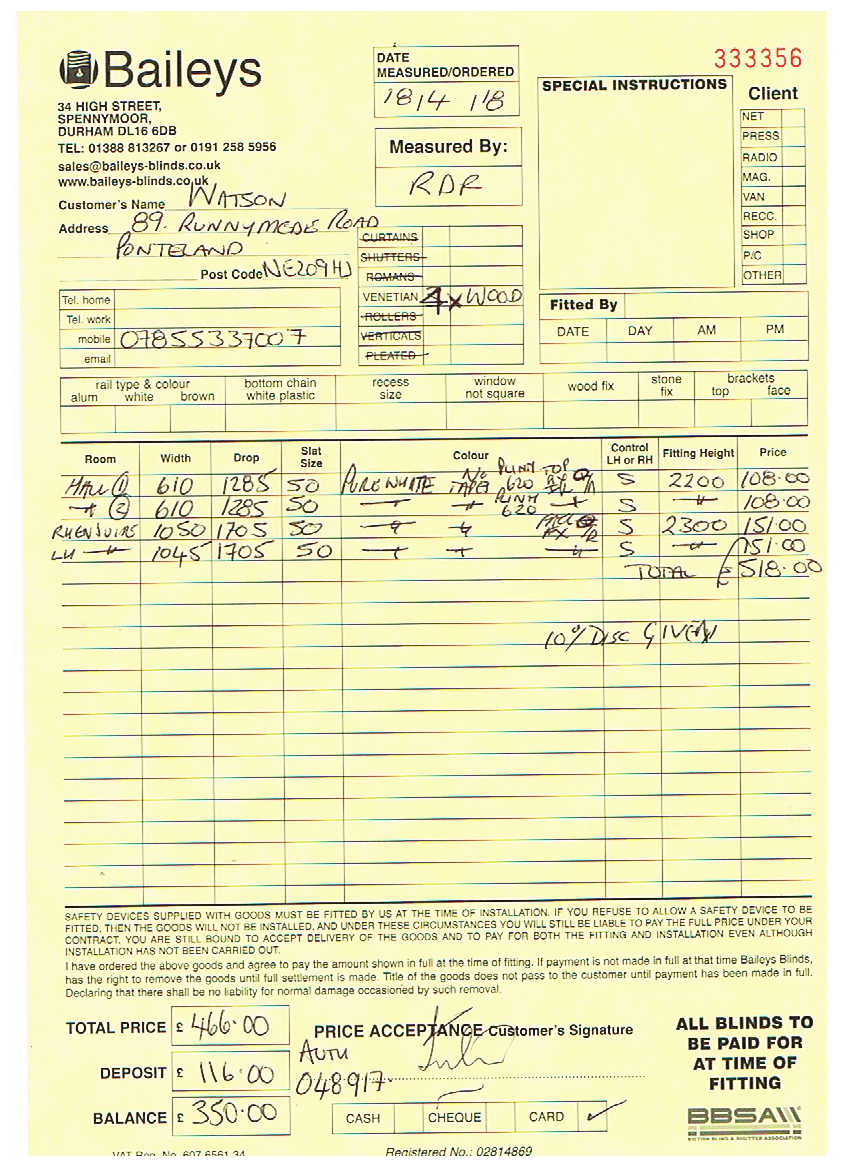 Baileys
34 HIGH STREET,
SPENNYMOOR,
DURHAM DL16 6DB
TEL: 01388 813267 or 0191 258 5956
sales@baileys-blinds.co.uk
www.baileys-blinds.co.uk
DATE MEASURED/ORDERED
18/4 1/8
Measured By:
RDR
333356
SPECIAL INSTRUCTIONS
Client
NET
PRESS
RADIO
MAG.
VAN
RECC.
SHOP
P/C
OTHER
Customer's Name WATSON
Address 89. RUNNYMEDE ROAD
PONTELAND
Post Code NE209HJ
Tel. home
Tel. work
mobile 07855337007
email
CURTAINS
SHUTTERS
ROMANS
VENETIAN 4x WOOD
ROLLERS
VERTICALS
PLEATED
Fitted By
DATE DAY AM PM
rail type & colour
alum white brown
bottom chain white plastic
recess size
window not square
wood fix
stone fix
brackets
top face
Room Width Drop Slat Size Colour Control LH or RH Fitting Height Price
HALL (1) 610 1285 50 PURE WHITE TOP S 2200 108.00
(2) 610 1285 50 620 S 108.00
1050 1705 50 S 2300 151.00
1045 1705 50 S 151.00
TOTAL £518.00
10% DISC GIVEN
SAFETY DEVICES SUPPLIED WITH GOODS MUST BE FITTED BY US AT THE TIME OF INSTALLATION. IF YOU REFUSE TO ALLOW A SAFETY DEVICE TO BE
FITTED, THEN THE GOODS WILL NOT BE INSTALLED, AND UNDER THESE CIRCUMSTANCES YOU WILL STILL BE LIABLE TO PAY THE FULL PRICE UNDER YOUR
CONTRACT. YOU ARE STILL BOUND TO ACCEPT DELIVERY OF THE GOODS AND TO PAY FOR BOTH THE FITTING AND INSTALLATION EVEN ALTHOUGH
INSTALLATION HAS NOT BEEN CARRIED OUT.
I have ordered the above goods and agree to pay the amount shown in full at the time of fitting. If payment is not made in full at that time Baileys Blinds,
has the right to remove the goods until full settlement is made. Title of the goods does not pass to the customer until payment has been made in full.
Declaring that there shall be no liability for normal damage occasioned by such removal.
TOTAL PRICE £ 466.00
DEPOSIT £ 116.00
BALANCE £ 350.00
PRICE ACCEPTANCE Customer's Signature
AUTH
048917
CASH CHEQUE CARD
ALL BLINDS TO
BE PAID FOR
AT TIME OF
FITTING
BBSA
BRITISH BLIND & SHUTTER ASSOCIATION
VAT Reg. No. 607 6561 34
Registered No.: 02814869